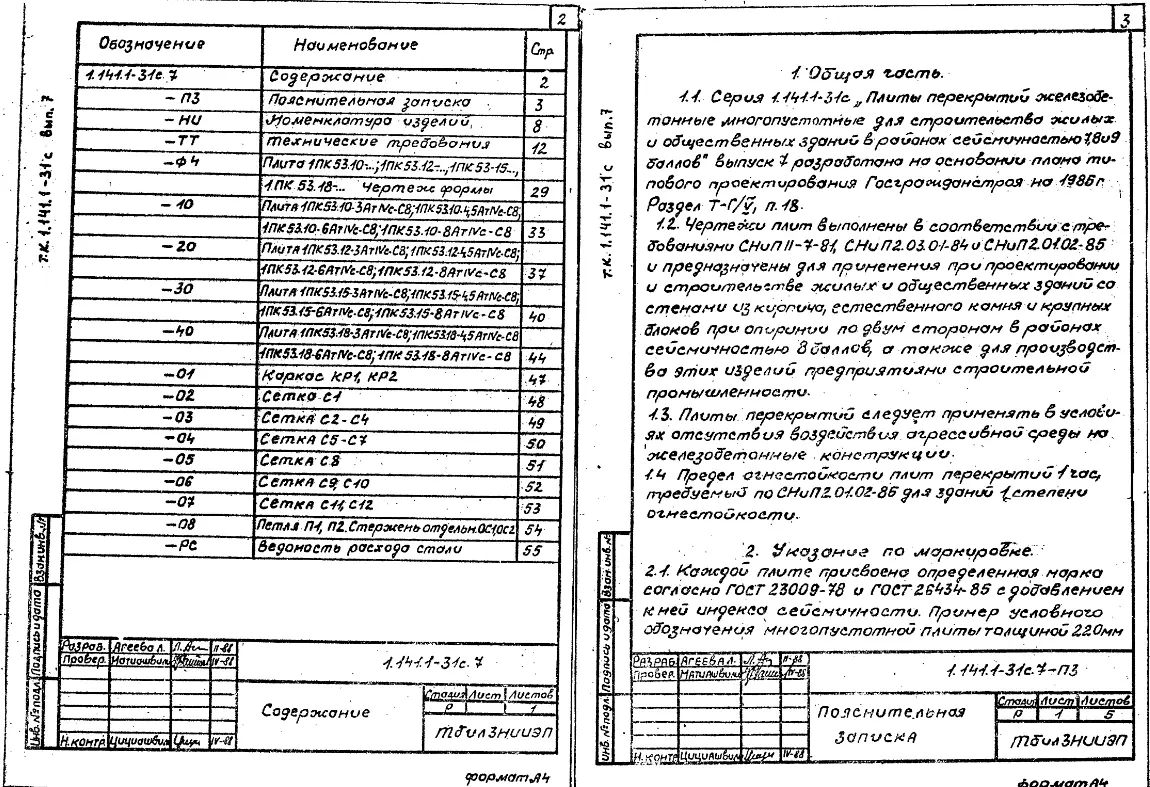 2
Обозначение Наименование Стр.
1.141.1-31с.7 Содержание 2
-ПЗ Пояснительная записка 3
-НИ Номенклатура изделий. 8
-ТТ Технические требования 12
-ФЧ Плита 1ПК53.10-..;1ПК53.12-..,1ПК53-15..,
1ПК 53.18-.. Чертеж формы 29
-10 Плита1ПК53.10-3АтIVс-С8;1ПК53.10-4,5АтIVс-С8;
1ПК53.10-6АтIVс-С8;1ПК53.10-8АтIVс-С8 33
-20 Плита1ПК53.12-3АтIVс-С8;1ПК53.12-4,5АтIVс-С8;
1ПК53.12-6АтIVс-С8;1ПК53.12-8АтIVс-С8 37
-30 Плита1ПК53.15-3АтIVс-С8;1ПК53.15-4,5АтIVс-С8;
1ПК53.15-6АтIVс-С8;1ПК53.15-8АтIVс-С8 40
-40 Плита1ПК53.18-3АтIVс-С8;1ПК53.18-4,5АтIVс-С8
1ПК53.18-6АтIVс-С8;1ПК53.18-8АтIVс-С8 44
-01 Каркас КР1, КР2 47
-02 Сетка С1 48
-03 Сетка С2-С4 49
-04 Сетка С5-С7 50
-05 Сетка С8 51
-06 Сетка С9, С10 52
-07 Сетка С11, С12 53
-08 Петля П1, П2. Стержень отдельн.ОС1,ОС2 54
-РС Ведомость расхода стали 55
Т.К. 1.141.1-31с вып. 7
Взам.инв.№
Подпись и дата
Инв.№подл.
Разраб. Агеева Л. II-88
Провер. Матиашвили IV-88
Н.контр Цициашвили IV-88
1.141.1-31с.7
Содержание
Стадия Лист Листов
Р 1
ТбилЗНИИЭП
формат А4
3
1. Общая часть.
1.1. Серия 1.141.1-31с „Плиты перекрытий железобе-
тонные многопустотные для строительства жилых
и общественных зданий в районах сейсмичностью 7,8и9
баллов" выпуск 7 разработана на основании плана ти-
пового проектирования Госгражданстроя на 1986г.
Раздел Т-Г/V, п.18.
1.2. Чертежи плит выполнены в соответствии с тре-
бованиями СНиП II-7-81, СНиП 2.03.01-84 и СНиП 2.01.02-85
и предназначены для применения при проектировании
и строительстве жилых и общественных зданий со
стенами из кирпича, естественного камня и крупных
блоков при опирании по двум сторонам в районах
сейсмичностью 8 баллов, а также для производст-
ва этих изделий предприятиями строительной
промышленности.
1.3. Плиты перекрытий следует применять в услови-
ях отсутствия воздействия агрессивной среды на
железобетонные конструкции.
1.4 Предел огнестойкости плит перекрытий 1 час,
требуемый по СНиП 2.01.02-85 для зданий 1 степени
огнестойкости.
2. Указание по маркировке.
2.1. Каждой плите присвоена определенная марка
согласно ГОСТ 23009-78 и ГОСТ 26434-85 с добавлением
к ней индекса сейсмичности. Пример условного
обозначения многопустотной плиты толщиной 220мм
Т.К. 1.141.1-31с вып.7
Взам.инв.№
Подпись и дата
Инв.№подл
Разраб. Агеева Л. II-88
Провер. Матиашвили IV-88
Н.контр Цициашвили IV-88
1.141.1-31с.7-ПЗ
Пояснительная
записка
Стадия Лист Листов
Р 1 5
ТбилЗНИИЭП
формат А4